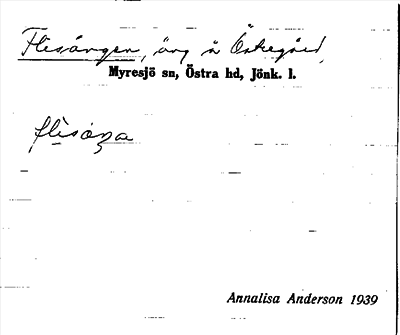 Flisängen, äng å Östregård,
Myresjö sn, Östra hd, Jönk. l.
flisäŋa
Annalisa Anderson 1939